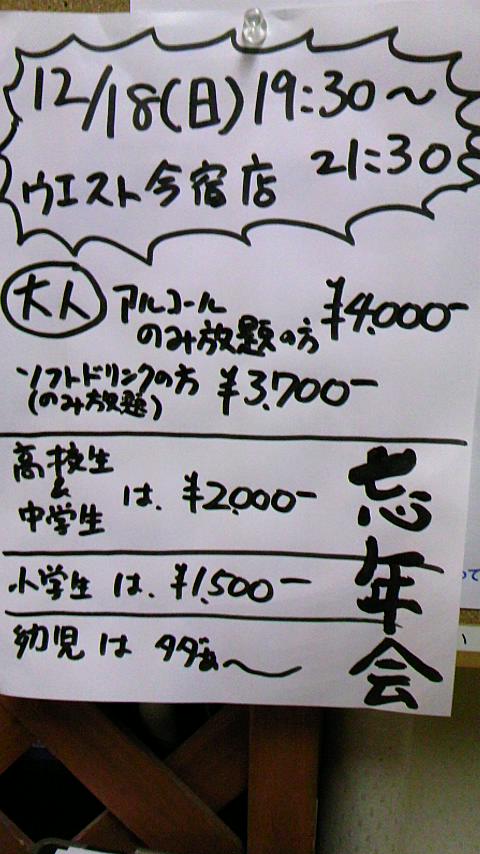 12/18(日)19:30〜
21:30
ウエスト今宿店
大人 アルコール
のみ放題の方 ¥4.000-
ソフトドリンクの方 ¥3.700-
(のみ放題)
高校生
&
中学生 は、¥2.000-
小学生 は、¥1.500-
幼児 は タダぁ〜
忘年会
って
い